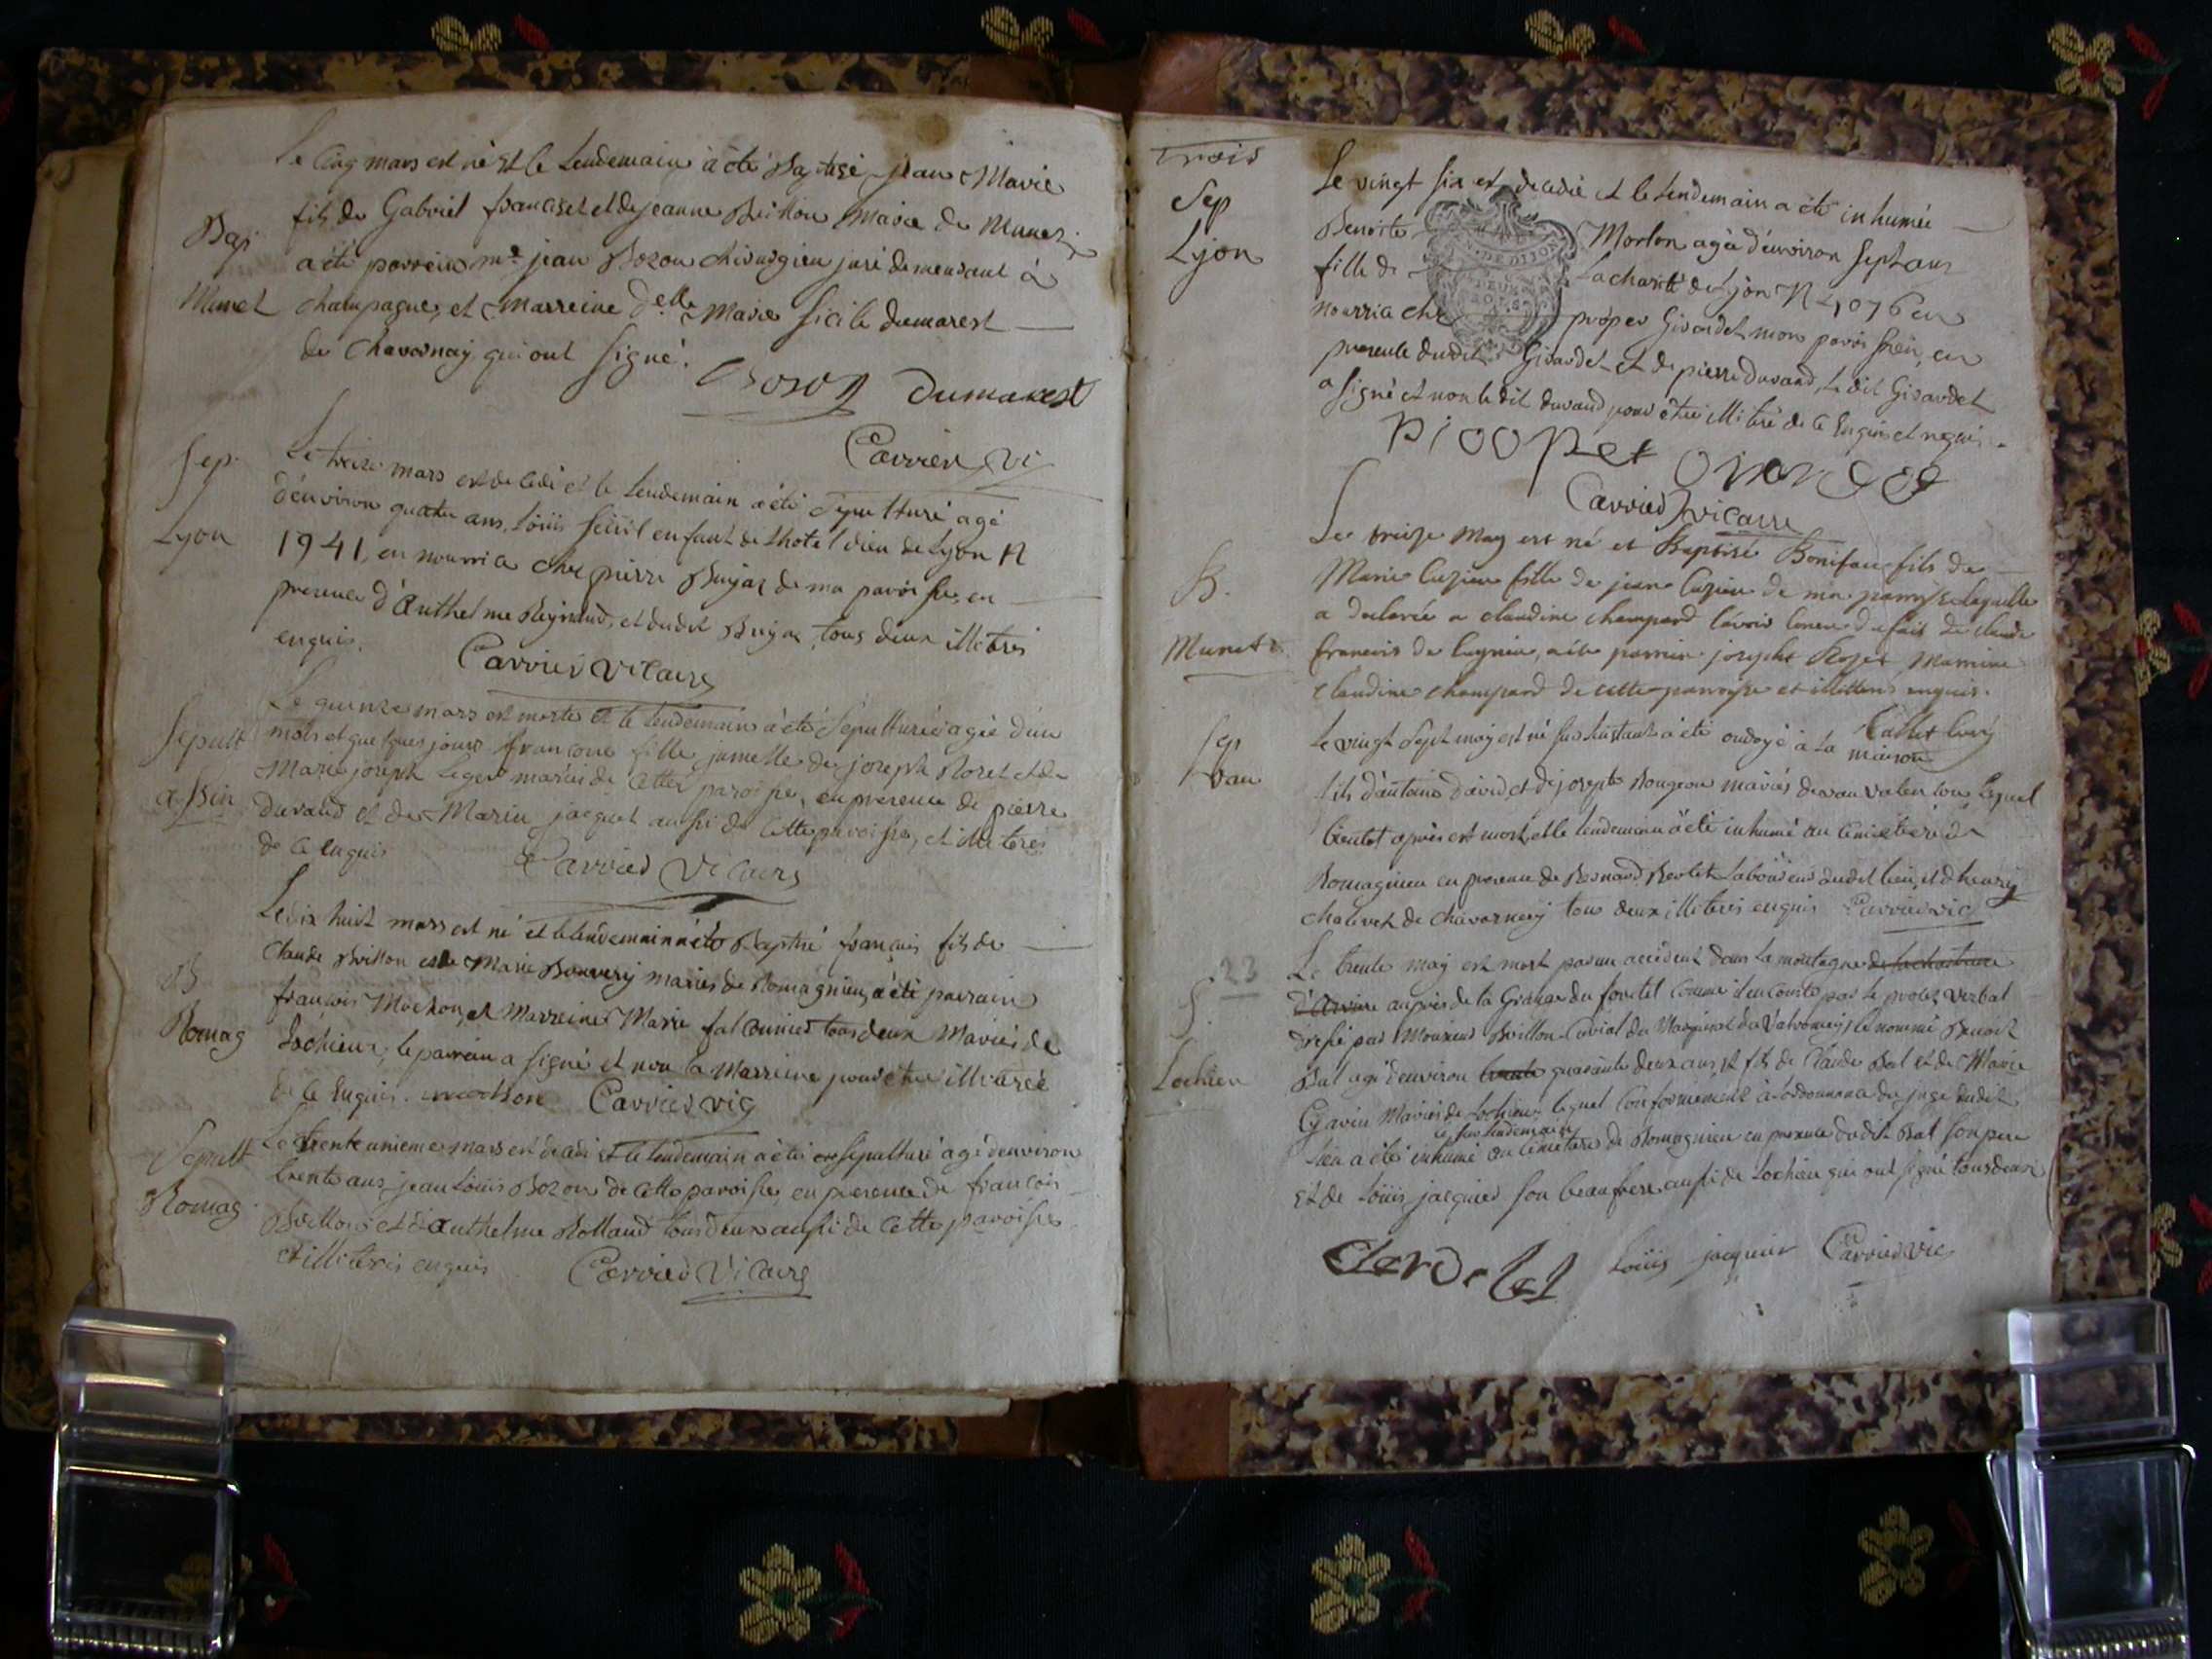 Le Cinq mars est né et le Lendemain a été Baptisé jean Marie
fils de Gabriel francoset et de jeanne Brillon Mariés de Munet
Bap
a été parrein mre jean Bozon chirurgien juré demeurant à
Munet
champagne, et Marreine delle Marie Sicile dumarest
de Chavornay qui ont signé.
Bozon Dumarest
Carrier Vic
Sep
Le treize mars est decedé et le Lendemain a été Sepulturé agé
d'environ quatre ans, Loüis enfant de Lhotel dieu de Lyon N
Lyon
1941, en nourrice chez pierre Bujas de ma paroisse, en
presence d'Anthelme Reynaud, et dudit tous deux illiterés
enquis.
Carrier Vicaire
Le quinze mars est morte et le lendemain a été Sepulturée agée d'un
Sepult
mois et quelques jours francoise fille jumelle de joseph et de
Marie joseph Leger mariés de Cette paroisse, en presence de pierre
durand et de Marin jacquet aussi de Cette paroisse, et illiterés
de Ce Enquis
Carrier Vicaire
Le dix huit mars est né et le lendemain a été Baptisé françois fils de
B
Claude Brillon et de Marie Bouvery mariés de Romagnieu, a été parrain
Romag
françois Mochon, et Marreine Marie tous deux Mariés de
Lochieu, le parrain a signé et non la Marreine pour etre illiterée
de Ce Enquis. mochon Carrier vic
Sepult
Le trente unieme mars est decedé et le lendemain a été sepulturé agé d'environ
Romag
trente ans, jean Loüis Bozon de Cette paroisse, en presence de francois
Brillon et d'Anthelme Rolland tous deux aussi de Cette paroisse
et illiterés enquis
Carrier Vicaire
Trois
Sep
Le vingt Six est decedée et le Lendemain a été inhumée
Lyon
Benoite Morlon agée d'environ Sept ans
fille de La charité de Lyon N 4076 en
nourrice chez prosper Girardet mon paroissien, en
presence dudit Girardet et de pierre durand, Le dit Girardet
a signé et non le dit durand pour être illitéré de Ce Enquis et requis.
Carrier Vicaire
Le treize May est né et Baptisé Boniface fils de
B.
Marie Cuzieu fille de jean Cuzieu de ma paroisse laquelle
a declarée a claudine champard l'avoir du fait de claude
Munet
francois de Cuynieu, a été parrein joseph Rozet Marreine
claudine champard de cette parroisse et illitteré enquis.
Sep
Le vingt Sept may est né a été ondoyé à La maison
Vau
fils d'antoine David, et de josepte Bougeon mariés de vau valentin Lequel
bientot après est mort, et le lendemain a été inhumé au Cimetiere de
Romagnieu en presence de Bernard Berlet Laboureur dudit lieu, et d'henry
chalivet de chavornay tous deux illiterés enquis Carrier vic
23
S.
Le trente may est mort par un accident dans la montagne de la chartreuse
d'Arviere auprès de la Grange du comme il en Conste par le procez Verbal
dressé par Monsieur Brillon du Marquisat du Valromey, le nommé Benoit
Lochieu
Bal agé d'environ trente quarante deux ans, et fils de Claude Bal et de Marie
Mariés de Lochieu lequel Conformement à Lordonnance du juge dudit
le surlendemain
Lieu a été inhumé au Cimetiere de Romagnieu en presence dudit Bal Son pere
et de Loüis jacquier Son beaufrere aussi de Lochieu qui ont signé tous deux
Loüis jacquier Carrier vic